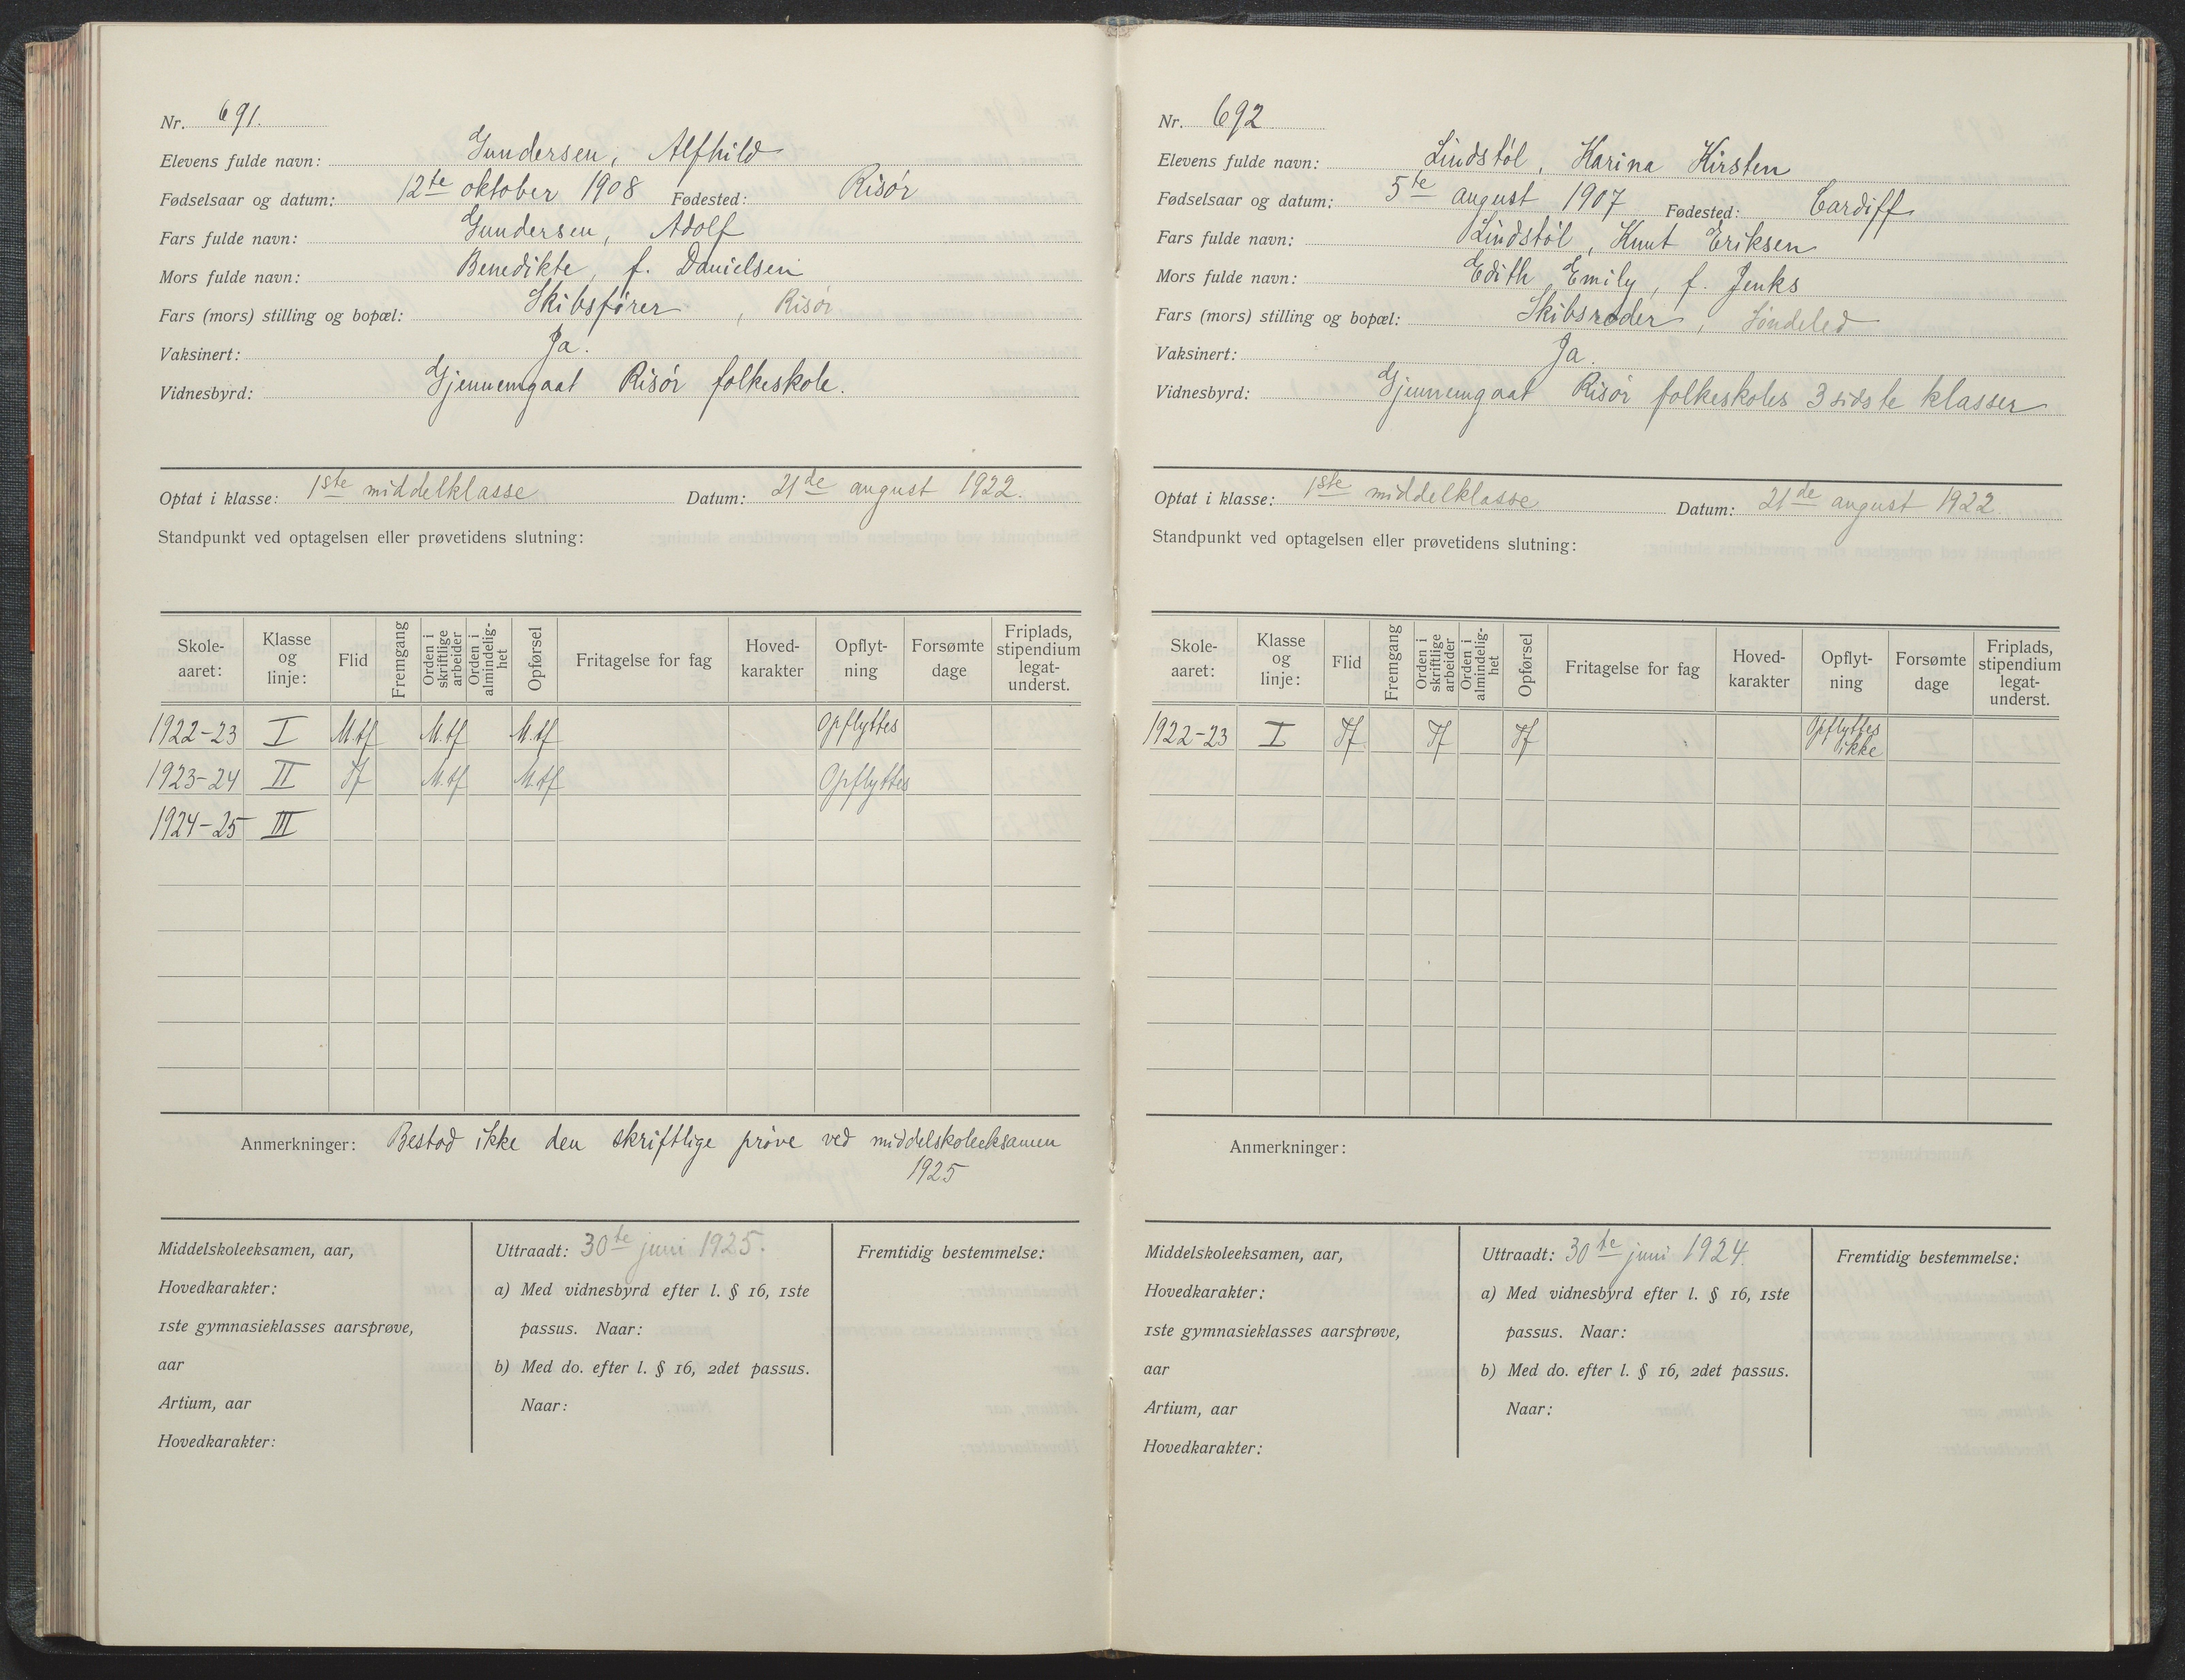 Nr. 691.
Elevens fulde navn: Gundersen, Alfhild
Fødselsaar og datum: 12te oktober 1908 Fødested: Risør
Fars fulde navn: Gundersen, Adolf
Mors fulde navn: Benedikte, f. Danielsen
Fars (mors) stilling og bopæl: Skibsfører, Risør
Vaksinert: Ja.
Vidnesbyrd: Gjennemgaat Risør folkeskole.
Optat i klasse: 1ste middelklasse Datum: 21de august 1922.
Standpunkt ved optagelsen eller prøvetidens slutning:
Skole-aaret: Klasse og linje: Flid Fremgang Orden i skriftlige arbeider Orden i almindelig-het Opførsel Fritagelse for fag Hoved-karakter Opflyt-ning Forsømte dage Friplads, stipendium legat-underst.
1922-23 I M.tf M.tf M.tf Opflyttes
1923-24 II Tf M.tf M.tf Opflyttes
1924-25 III
Anmerkninger: Bestod ikke den skriftlige prøve ved middelskoleeksamen
1925
Middelskoleeksamen, aar, Uttraadt: 30te juni 1925. Fremtidig bestemmelse:
Hovedkarakter: a) Med vidnesbyrd efter l. § 16, 1ste
1ste gymnasieklasses aarsprøve, passus. Naar:
aar b) Med do. efter l. § 16, 2det passus.
Artium, aar Naar:
Hovedkarakter:
Nr. 692
Elevens fulde navn: Lindstøl, Karina Kirsten
Fødselsaar og datum: 5te august 1907 Fødested: Cardiff
Fars fulde navn: Lindstøl, Knut Eriksen
Mors fulde navn: Edith Emily, f. Jenks
Fars (mors) stilling og bopæl: Skibsreder, Søndeled
Vaksinert: Ja.
Vidnesbyrd: Gjennemgaat Risør folkeskoles 3 sidste klasser
Optat i klasse: 1ste middelklasse Datum: 21de august 1922
Standpunkt ved optagelsen eller prøvetidens slutning:
Skole-aaret: Klasse og linje: Flid Fremgang Orden i skriftlige arbeider Orden i almindelig-het Opførsel Fritagelse for fag Hoved-karakter Opflyt-ning Forsømte dage Friplads, stipendium legat-underst.
1922-23 I Tf Tf Tf Opflyttes ikke
Anmerkninger:
Middelskoleeksamen, aar, Uttraadt: 30te juni 1924. Fremtidig bestemmelse:
Hovedkarakter: a) Med vidnesbyrd efter l. § 16, 1ste
1ste gymnasieklasses aarsprøve, passus. Naar:
aar b) Med do. efter l. § 16, 2det passus.
Artium, aar Naar:
Hovedkarakter: